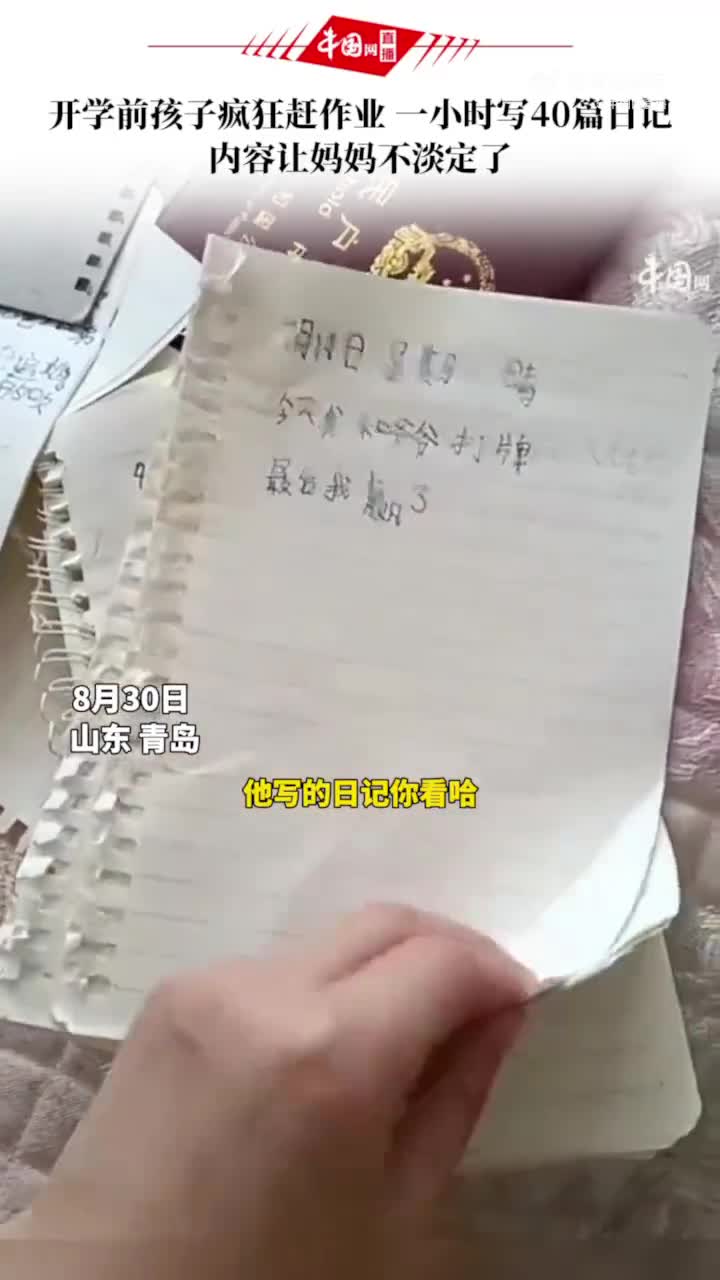 中国网 直播
开学前孩子疯狂赶作业 一小时写40篇日记
内容让妈妈不淡定了
户
中国网
月18日 星期 晴
今天我和爷爷打牌
最后我赢了
8月30日
山东 青岛
他写的日记你看哈